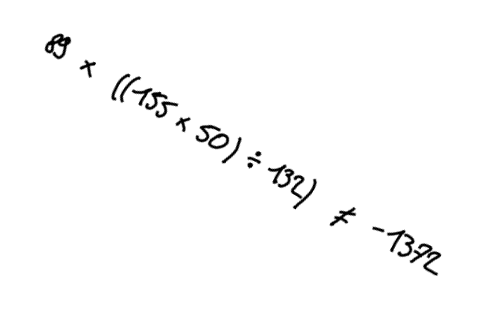 89 × ((155 × 50) ÷ 132) ≠ -1372